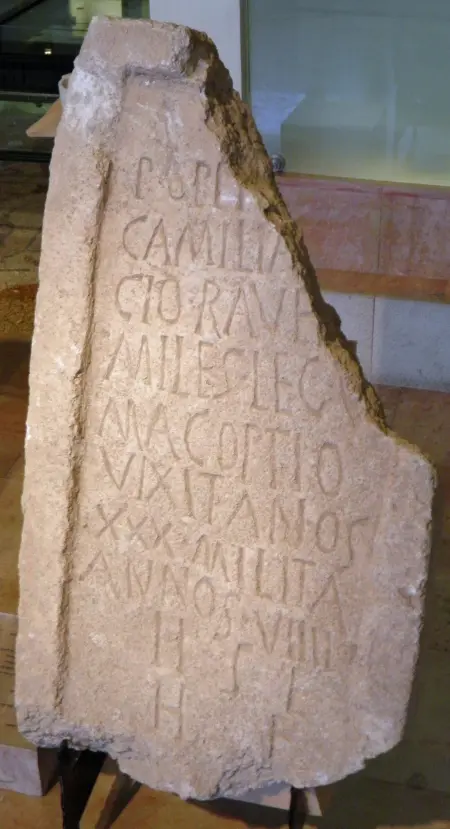 POPLI
CAMILIA
CIO·RAVE
MILES·LEG V
MAC OPTIO
VIXIT ANOS
XXX·MILITA
ANNOS·VIIII
H S
H F